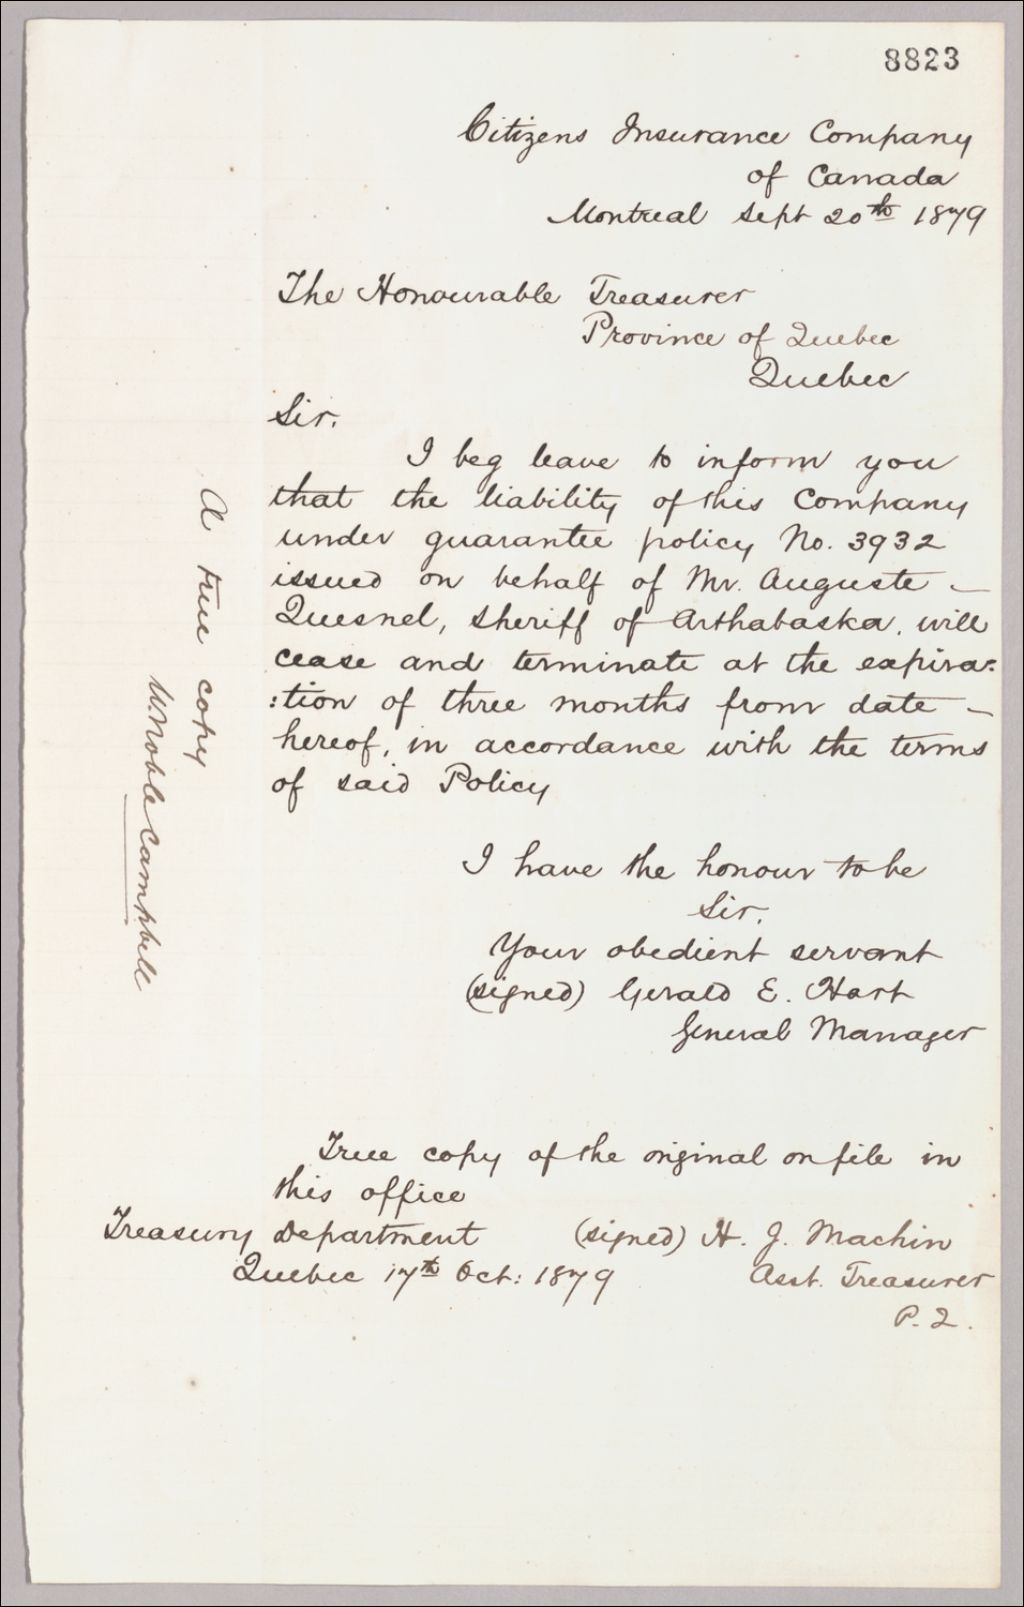 8823
Citizens Insurance Company
of Canada
Montreal Sept 20th 1879
The Honourable Treasurer
Province of Quebec
Quebec
Sir.
I beg leave to inform you
that the liability of this Company
under guarantee policy No. 3932
issued on behalf of Mr. Auguste –
Quesnel, Sheriff of Arthabaska, will
cease and terminate at the expira:
:tion of three months from date –
hereof, in accordance with the terms
of said Policy
I have the honour to be
Sir.
Your obedient servant
(signed) Gerald E. Hart
General Manager
True copy of the original on file in
this office
Treasury Department (signed) H. J. Machin
Quebec 17th Oct: 1879 Asst. Treasurer
P. Q.
A true copy
W. Noble Campbell